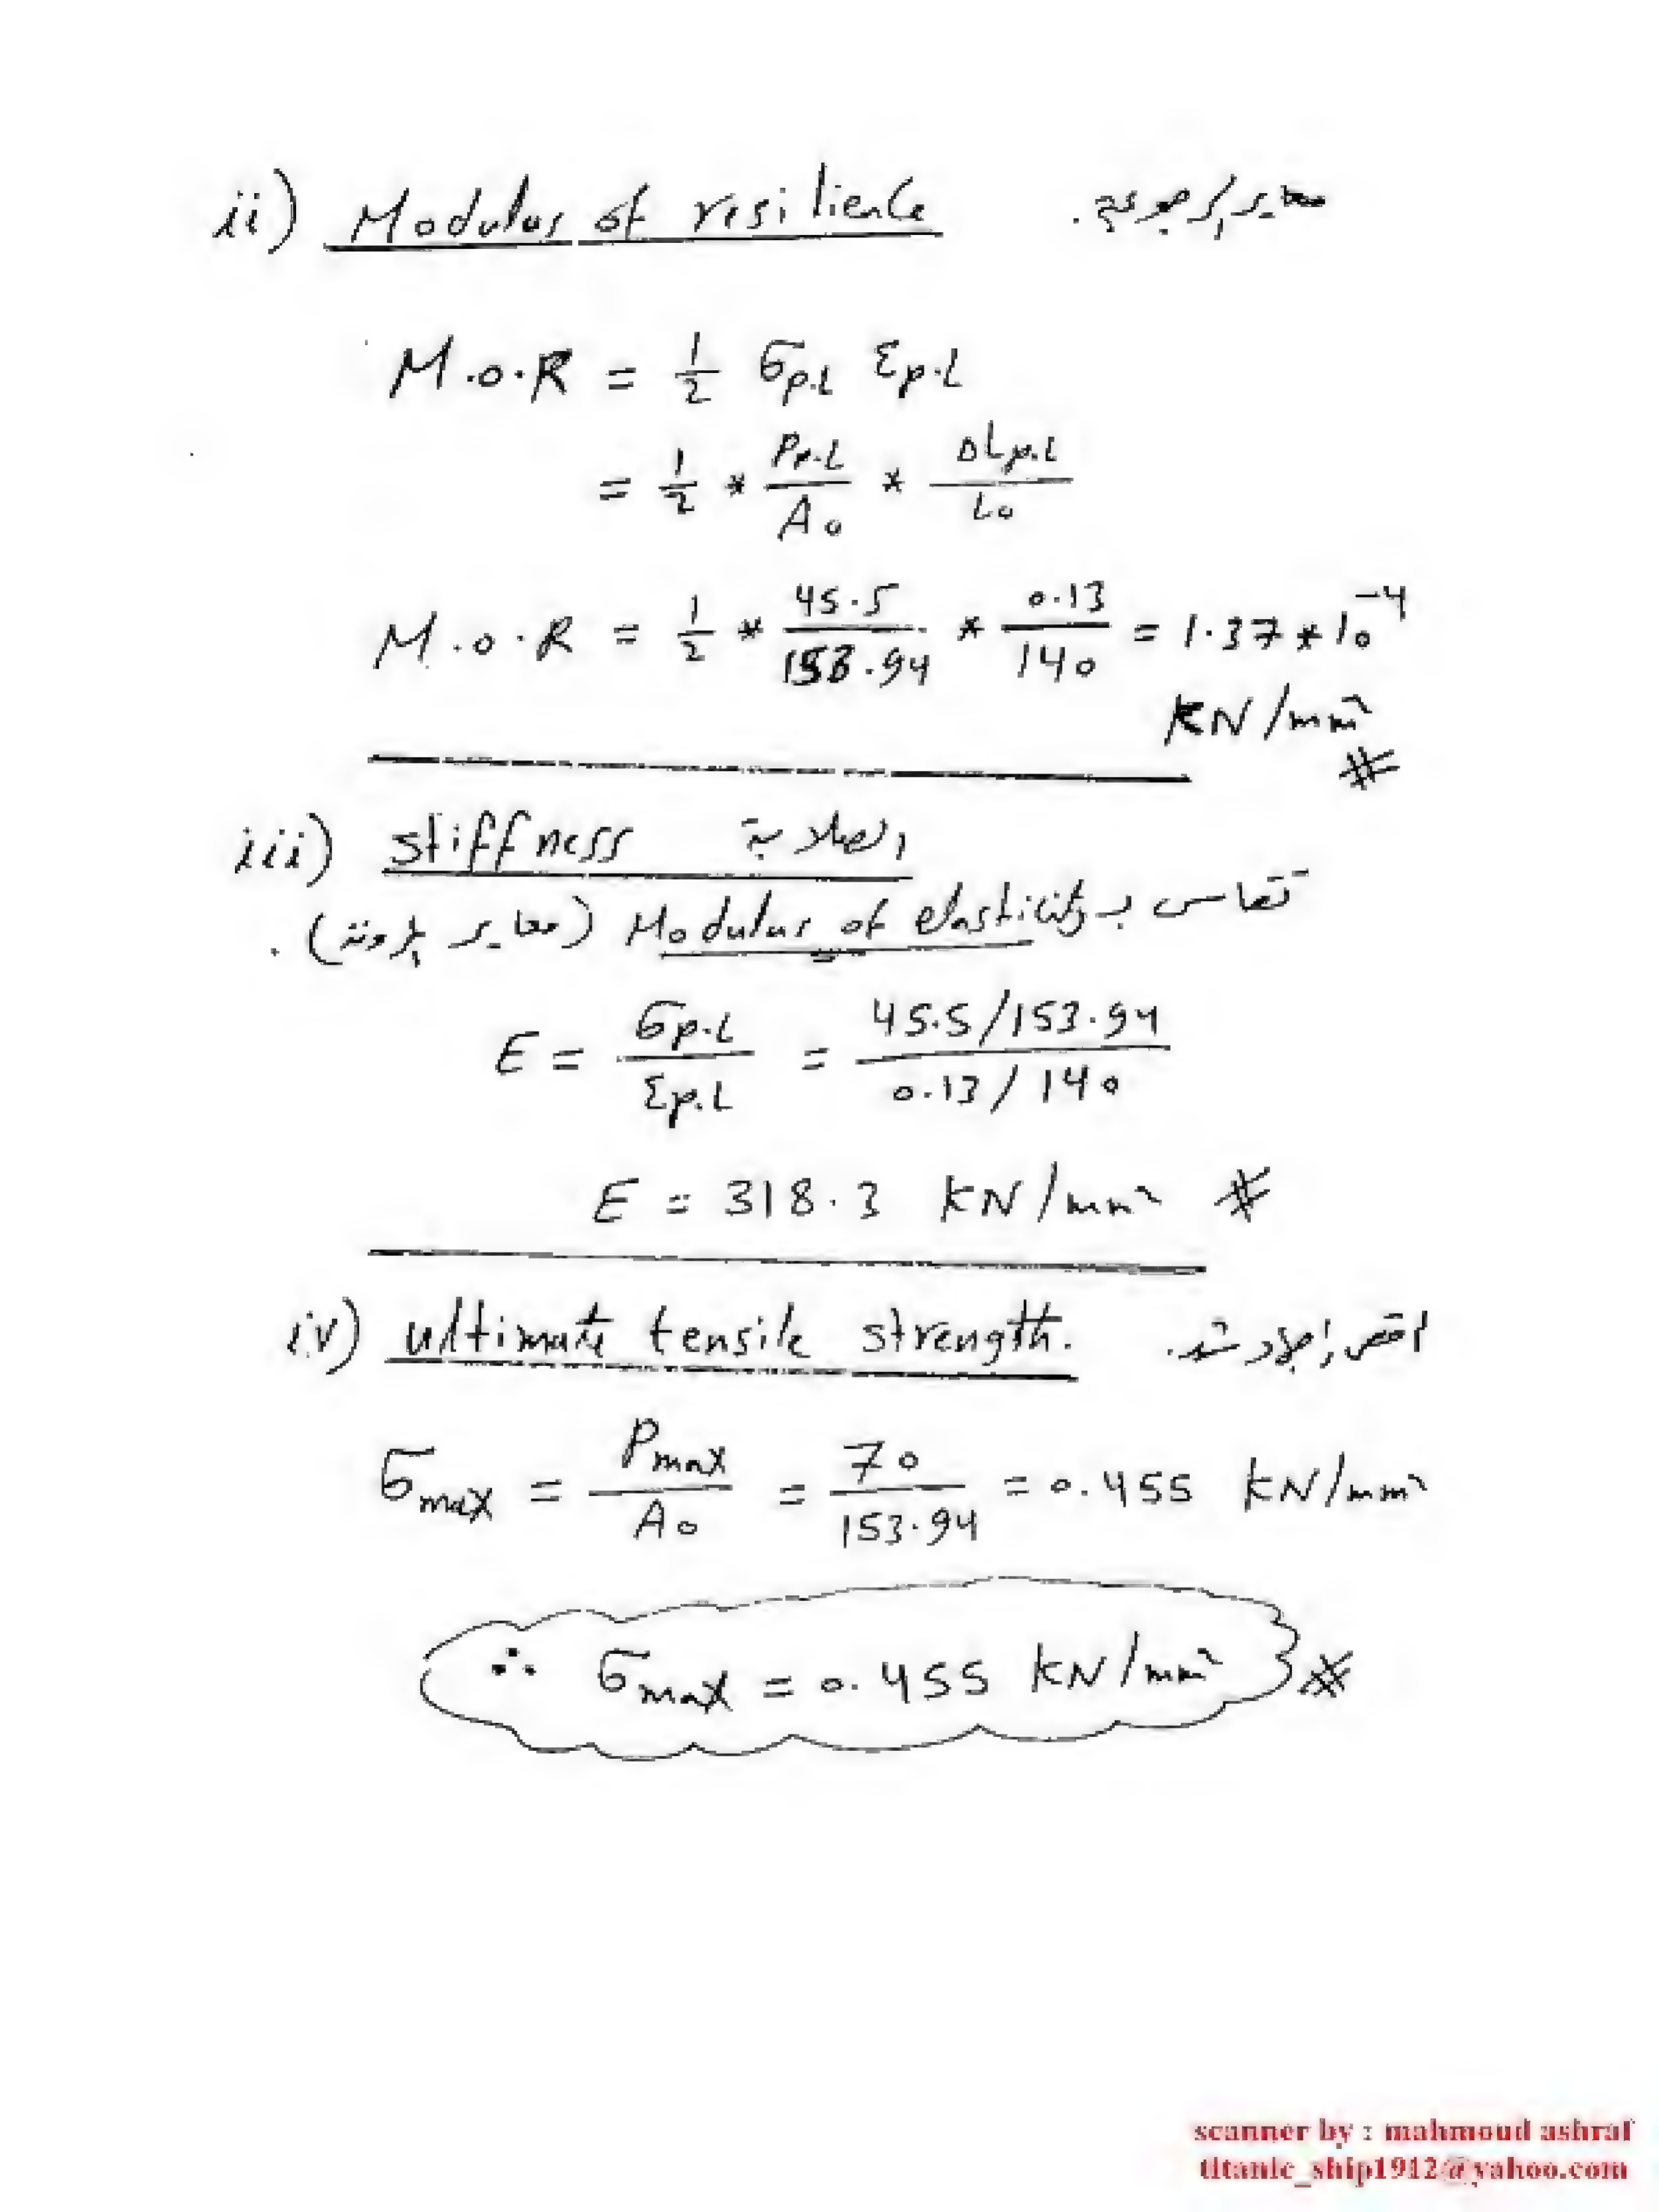 ii) Modulus of resilience معاير الرجوعية.
M.O.R = 1/2 σp.L εp.L
= 1/2 * Pp.L/A₀ * ΔLp.L/L₀
M.O.R = 1/2 * 45.5/153.94 * 0.13/140 = 1.37 * 10⁻⁴
KN/mm² #
iii) stiffness الصلابة
تقاس بـ Modulus of elasticity (معاير المرونة).
E = σp.L/εp.L = 45.5/153.94 / 0.13/140
E = 318.3 KN/mm² #
iv) ultimate tensile strength. اقصى إجهاد شد.
σmax = Pmax/A₀ = 70/153.94 = 0.455 KN/mm²
∴ σmax = 0.455 KN/mm² #
scanner by : mahmoud ashraf
titanic_ship1912@yahoo.com